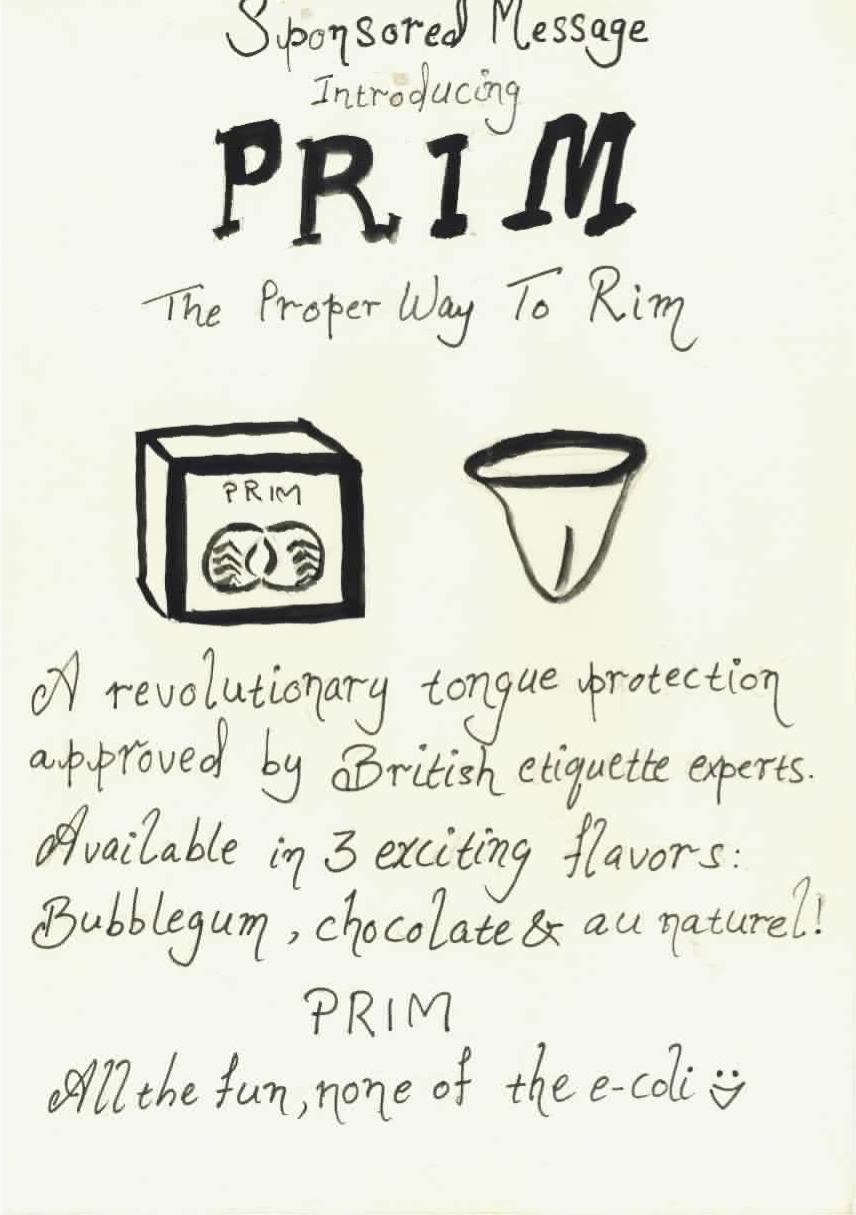 Sponsored Message
Introducing
PRIM
The Proper Way To Rim
PRIM
A revolutionary tongue protection
approved by British etiquette experts.
Available in 3 exciting flavors:
Bubblegum, chocolate & au naturel!
PRIM
All the fun, none of the e-coli